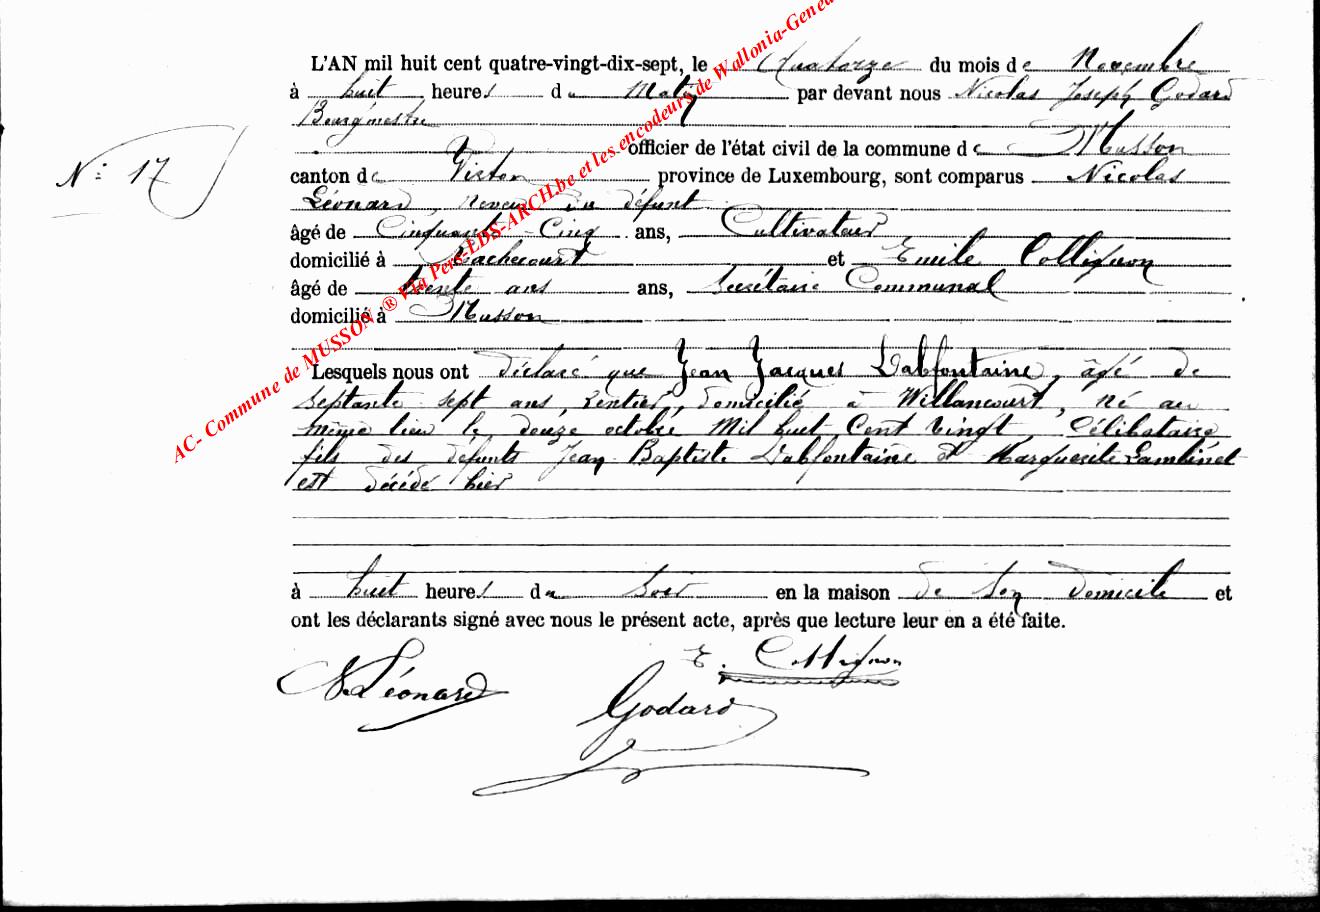 L'AN mil huit cent quatre-vingt-dix-sept, le Quatorze du mois de Novembre
à huit heures du Matin par devant nous Nicolas Joseph Godard
Bourgmestre
officier de l'état civil de la commune de Musson
N° 17
canton de Virton province de Luxembourg, sont comparus Nicolas
Léonard, neveu du défunt
âgé de Cinquante Cinq ans, Cultivateur
domicilié à Rachecourt et Emile Collignon
âgé de trente ans ans, Secrétaire Communal
domicilié à Musson
Lesquels nous ont déclaré que Jean Jacques Labfontaine, âgé de
Septante sept ans, rentier, domicilié à Willancourt, né au
même lieu le douze octobre Mil huit Cent Vingt, Célibataire
fils des défunts Jean Baptiste Labfontaine et Marguerite Lambinet
est décédé hier
à huit heures du Soir en la maison de son domicile et
ont les déclarants signé avec nous le présent acte, après que lecture leur en a été faite.
N. Léonard
E. Collignon
Godard
AC- Commune de MUSSON ® Via Pers-LDS-ARCH.be et les encodeurs de Wallonia-Genea